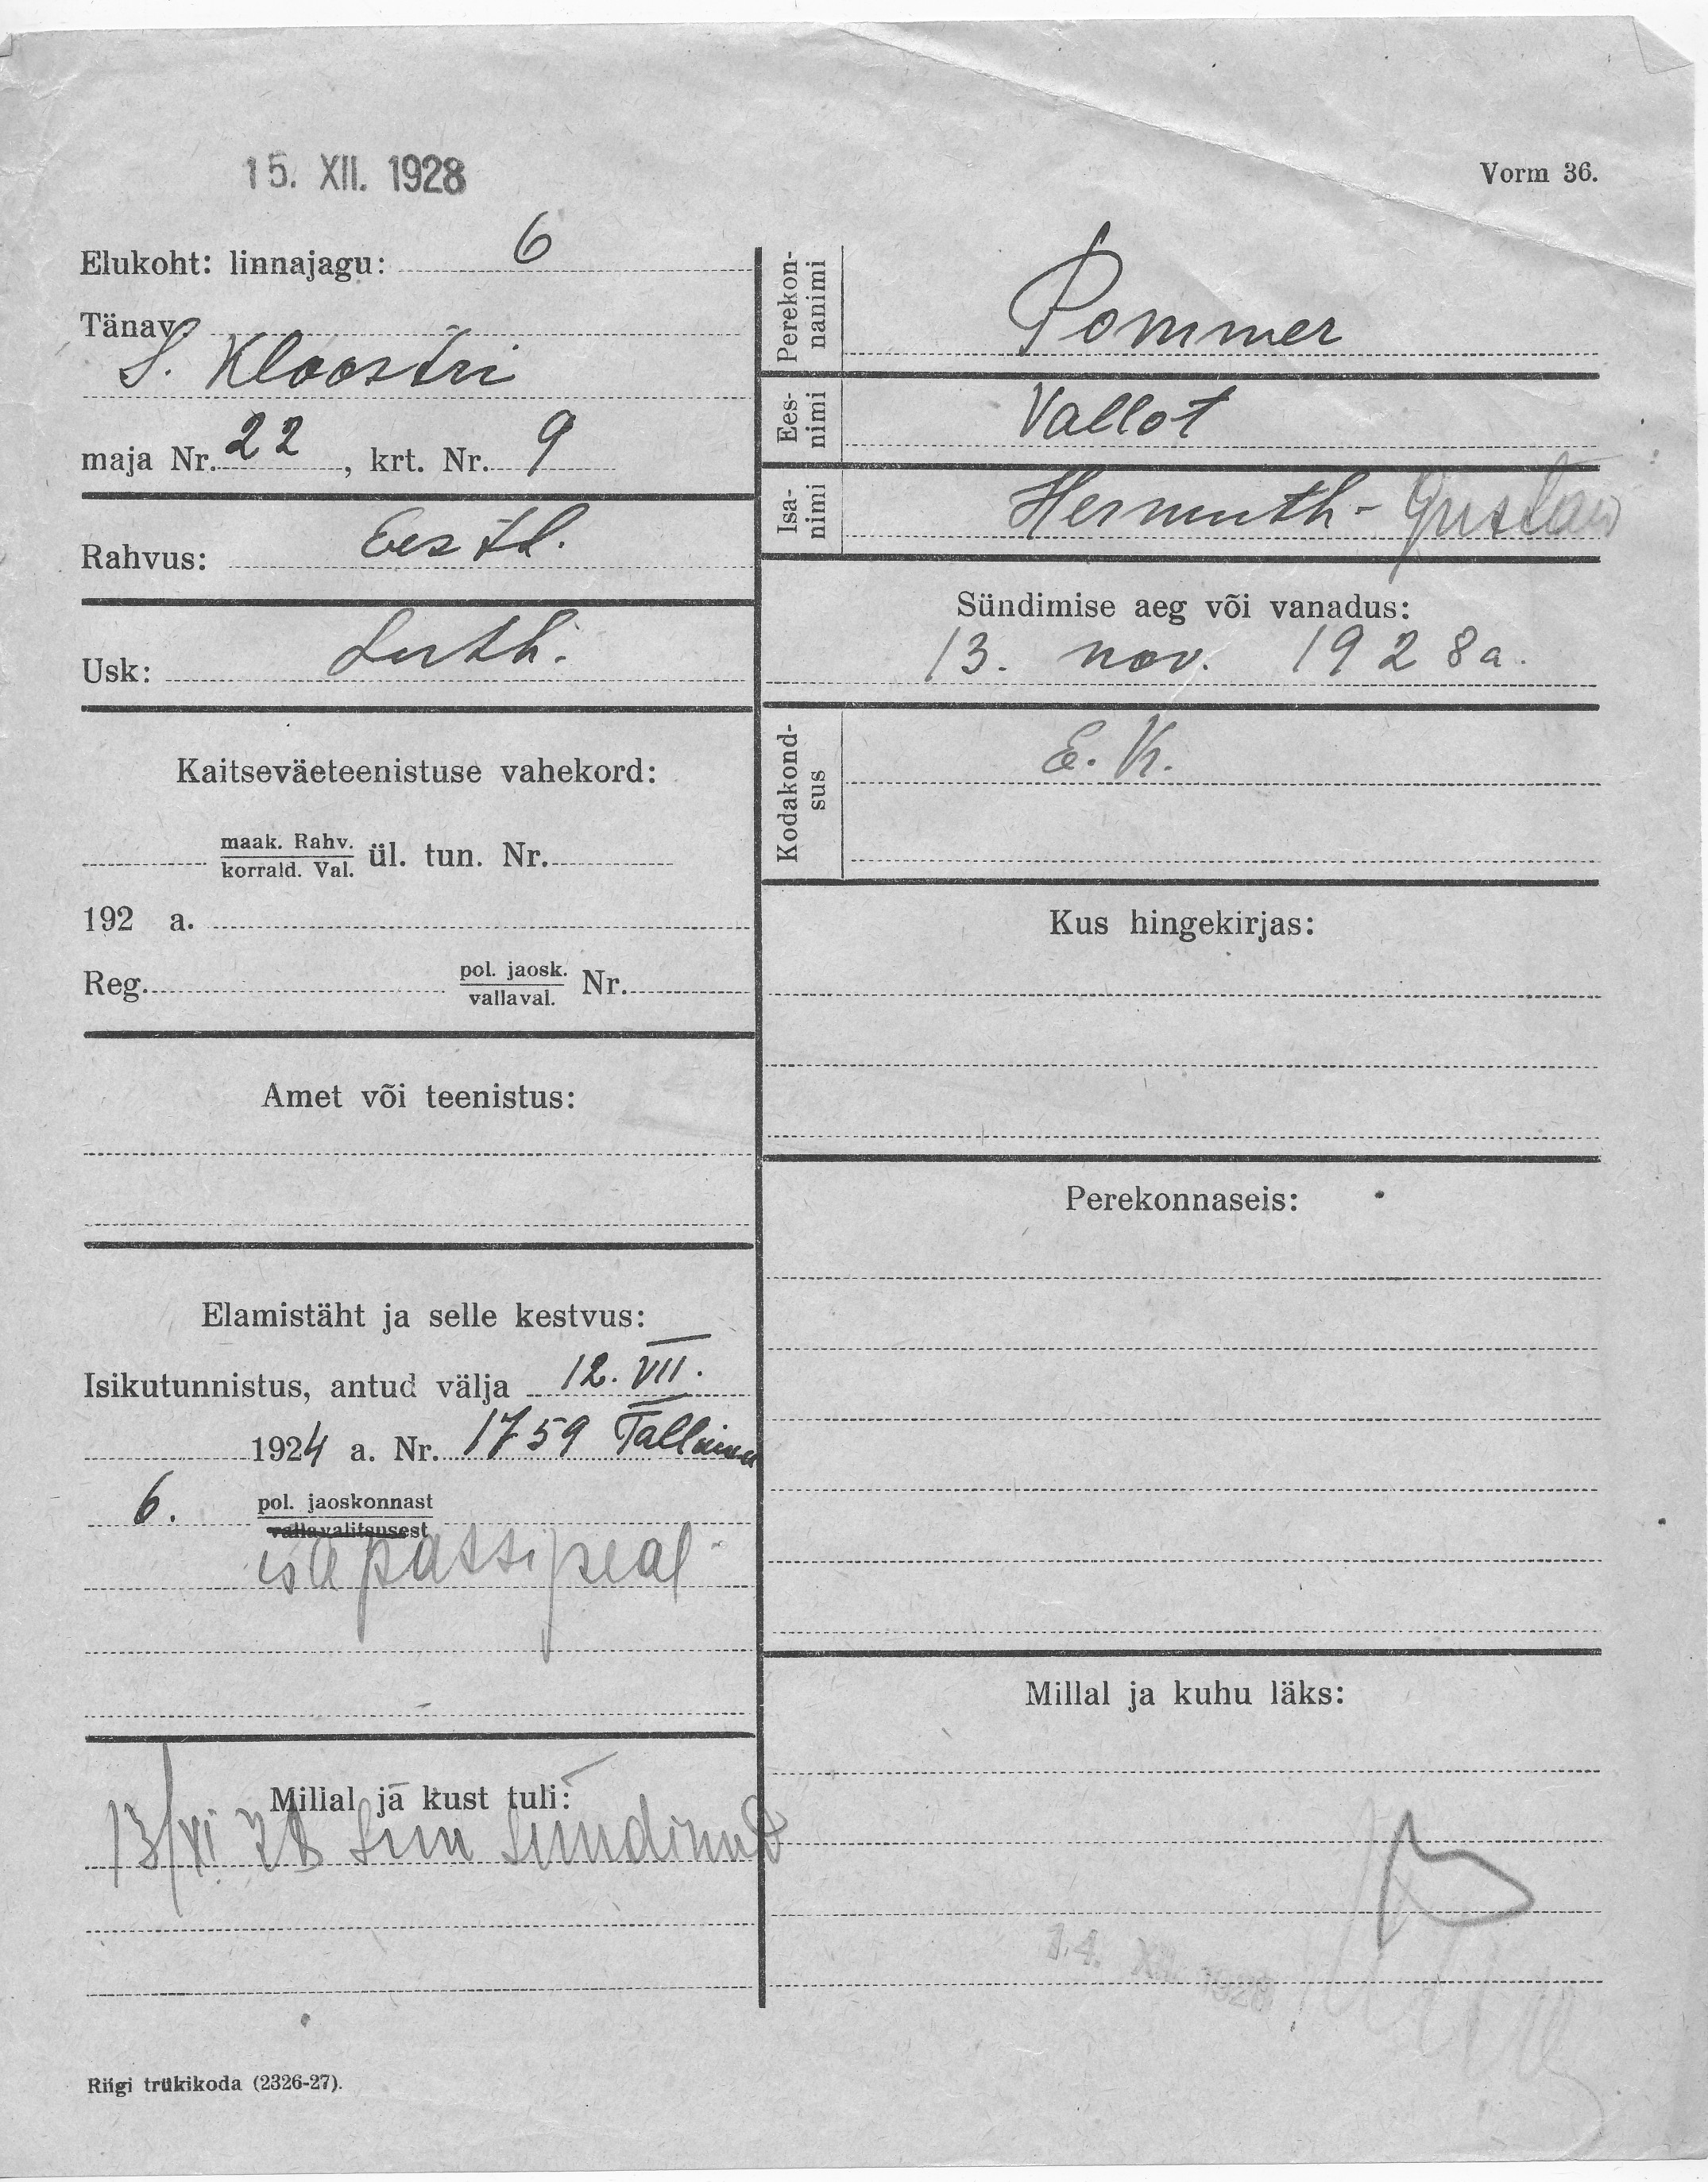 15. XII. 1928
Vorm 36.
Elukoht: linnajagu: 6
Tänav
S. Kloostri
maja Nr. 22, krt. Nr. 9
Rahvus: Eestl.
Usk: Luth.
Kaitseväeteenistuse vahekord:
maak. Rahv.
korrald. Val. ül. tun. Nr.
192 a.
Reg. pol. jaosk.
vallaval. Nr.
Amet või teenistus:
Elamistäht ja selle kestvus:
Isikutunnistus, antud välja 12. VII.
1924 a. Nr. 1759 Tallinna
6. pol. jaoskonnast
vallavalitsusest
isa passi peal
Millal ja kust tuli:
13/XI 28 siin sündinud
Riigi trükikoda (2326-27).
Perekon-
nanimi
Pommer
Ees-
nimi
Vallot
Isa-
nimi
Hermuth- Gustav
Sündimise aeg või vanadus:
13. nov. 1928 a.
Kodakond-
sus
E. K.
Kus hingekirjas:
Perekonnaseis:
Millal ja kuhu läks:
14. XII. 1928